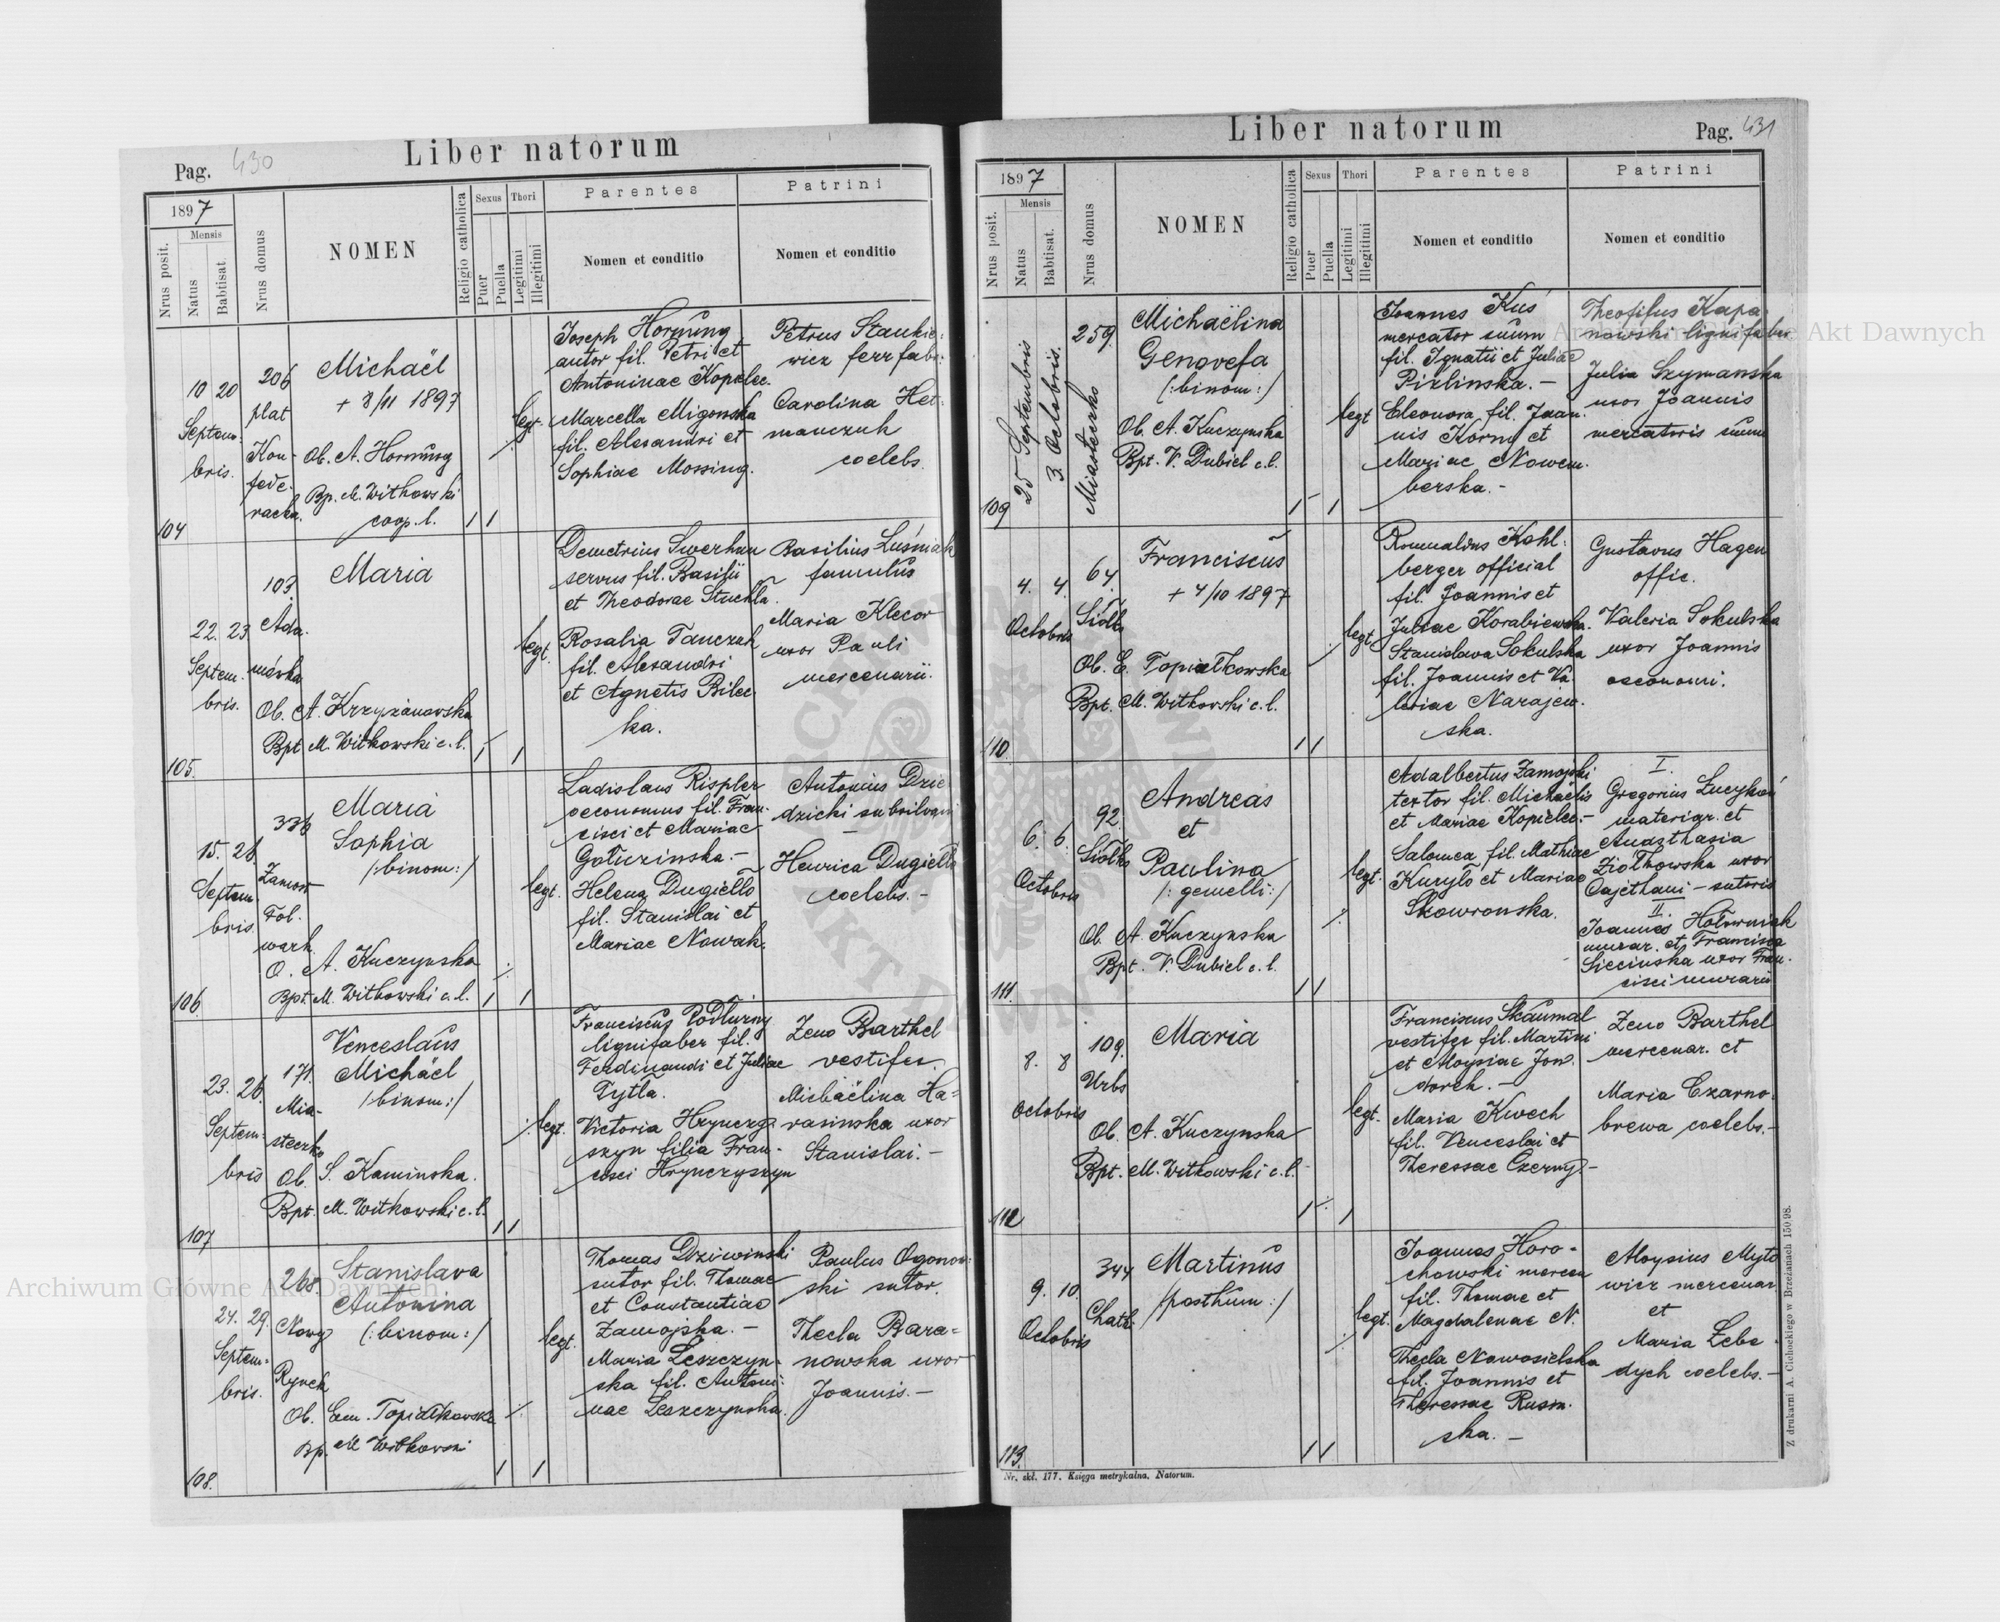 Pag. 430
Liber natorum
1897
Nrus posit.
Mensis
Natus
Babtisat.
Nrus domus
NOMEN
Religio catholica
Sexus
Puer
Puella
Thori
Legitimi
Illegitimi
Parentes
Nomen et conditio
Patrini
Nomen et conditio
104
10 20
Septem-
bris.
206
plat
Kon-
fede-
racka.
Michaël
+ 8/11 1897
Ob. A. Hornung
Bp. M. Witkowski
coop. l.
legt.
Joseph Hornung
autor fil. Petri et
Antoninae Kopelec.
Marcella Migonska
fil. Alexandri et
Sophiae Mossing.
Petrus Stankie-
wicz ferrfabr.
Carolina Het-
manczuk
coelebs.
105.
22. 23
Septem-
bris.
103.
Ada-
mówka
Maria
Ob. A. Krzyżanowska
Bpt M. Witkowski c. l.
legt.
Demetrius Swerhun
servus fil. Basilii
et Theodorae Stuchla.
Rosalia Tanczuk
fil. Alexandri
et Agnetis Bilec-
ka.
Basilius Luśniak
famulus
Maria Klecor
uxor Pauli
mercenarii.
106
15. 26.
Septem.
bris.
336
Zamow
Fol-
wark
Maria
Sophia
/:binom:/
O. A. Kuczynska
Bpt. M. Witkowski c. l.
legt.
Ladislaus Rispler
oeconomus fil. Fran-
cisci et Mariae
Gołuzinska. -
Helena Dugiełło
fil. Stanislai et
Mariae Nowak.
Antonius Dzie-
dzicki
Henrica Dugiełło
coelebs. -
107
23. 26.
Septem-
bris
171.
Mia-
steczko
Venceslaus
Michaël
/:binom:/
Ob. S. Kaminska.
Bpt. M. Witkowski c. l.
legt.
Franciscus Podłużny
lignifaber fil.
Ferdinandi et Juliae
Tytla.
Victoria Hrynczy-
szyn filia Fran-
cisci Hrynczyszyn
Zeno Barthel
vestifex.
Michaëlina Ha-
rasinska uxor
Stanislai. -
108.
24. 29.
Septem-
bris.
268.
Nowy
Rynek
Stanislava
Antonina
(:binom:/
Ob. Em. Topiałkowska
Bp. M Witkowski
legt.
Thomas Dziwinski
sutor fil. Thomae
et Constantiae
Zamojska. -
Maria Leszczyn-
ska fil. Antoni-
nae Leszczynska.
Paulus Ogonow-
ski sutor.
Thecla Bara-
nowska uxor
Joannis. -
Liber natorum
Pag. 431
1897
Nrus posit.
Mensis
Natus
Babtisat.
Nrus domus
NOMEN
Religio catholica
Sexus
Puer
Puella
Thori
Legitimi
Illegitimi
Parentes
Nomen et conditio
Patrini
Nomen et conditio
109
25 Septembris
3. Octobris.
259.
Miasteczko
Michaëlina
Genovefa
(:binom:/
Ob. A. Kuczynska
Bpt. V. Dubiel c. l.
legt
Joannes Kuś
mercator suum
fil. Ignatii et Juliae
Pizlinska. -
Eleonora fil. Joan-
nis Korny et
Mariae Nowem-
berska. -
Theofilus Kapa-
nowski lignifaber
Julia Szymanska
uxor Joannis
mercatoris suum
110
4. 4.
Octobris
64.
Siółko
Franciscus
+ 4/10 1897
Ob. E. Topiałkowska
Bpt. M. Witkowski c. l.
legt.
Romualdus Kohl-
berger official
fil. Joannis et
Juliae Korabiewska.
Stanislava Sokulska
fil. Joannis et Va-
leriae Narajew-
ska.
Gustavus Hagen
offic.
Valeria Sokulska
uxor Joannis
oeconomi.
111.
6. 6.
Octobris
92.
Siółko
Andreas
et
Paulina
/:gemelli:/
Ob. A. Kuczynska
Bpt. V. Dubiel c. l.
legt.
Adalbertus Zamojski
textor fil. Michaelis
et Mariae Kopielec. -
Salomea fil. Mathiae
Kuryło et Mariae
Skowronska.
I.
Gregorius
materiar. et
Anazthasia
Ziołkowska uxor
Cajethani - sutoris
II.
Joannes Hołowniak
murar. et Francisca
Siecinska uxor Fran-
cisci murarii
112
8. 8
Octobris
109.
Urbs
Maria
Ob. A. Kuczynska
Bpt. M. Witkowski c. l.
legt.
Franciscus Skaumal
vestifex fil. Martini
et Aloysiae Jon-
dorek. -
Maria Kwech
fil. Venceslai et
Theressae Czerny -
Zeno Barthel
mercenar. et
Maria Czarno-
brewa coelebs. -
113.
9. 10.
Octobris
344
Chatk.
Martinus
/posthum:/
legt.
Joannes Horo-
chowski mercen
fil. Thomae et
Magdalenae N.
Thecla Nowosielska
fil. Joannis et
Theressae Rusin-
ska. -
Aloysius Myto
wicz mercenar.
et
Maria Lebe-
dych coelebs. -
Nr. skł. 177. Księga metrykalna. Natorum.
Z drukarni A. Cichockiego w Brzeżanach 150/98.
Archiwum Główne Akt Dawnych
Archiwum Główne Akt Dawnych